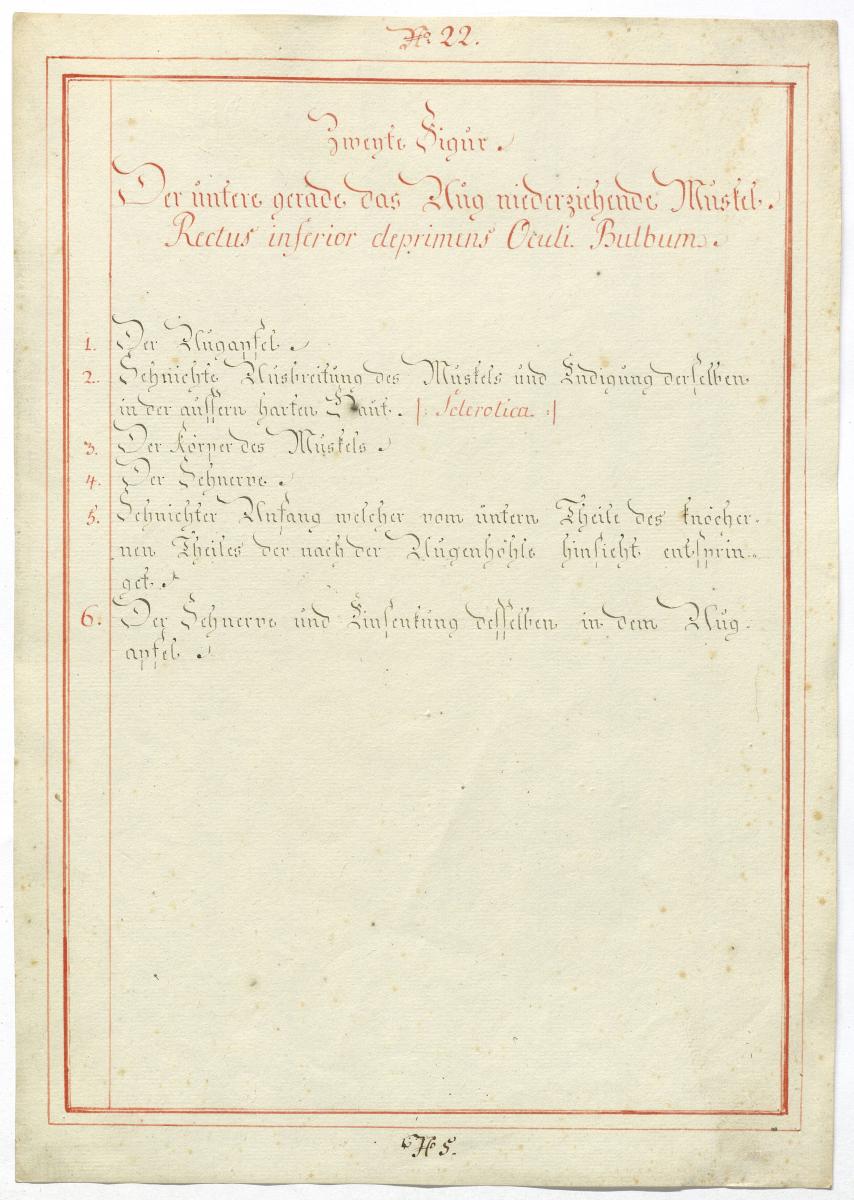 No. 22.
Zweyte Figur.
Der untere gerade das Aug niederziehende Muskel.
Rectus inferior deprimens Oculi Bulbum.
1. Der Augapfel.
2. Sehnichte Ausbreitung des Muskels und Endigung derselben
in der äussern harten Haut. |: Sclerotica :|
3. Der Körper des Muskels.
4. Der Sehnerve.
5. Sehnichter Anfang welcher vom untern Theile des knöcher-
nen Theiles der nach der Augenhöhle hinsieht entsprin-
get.
6. Der Sehnerve und Einsenkung desselben in dem Aug-
apfel.
5.